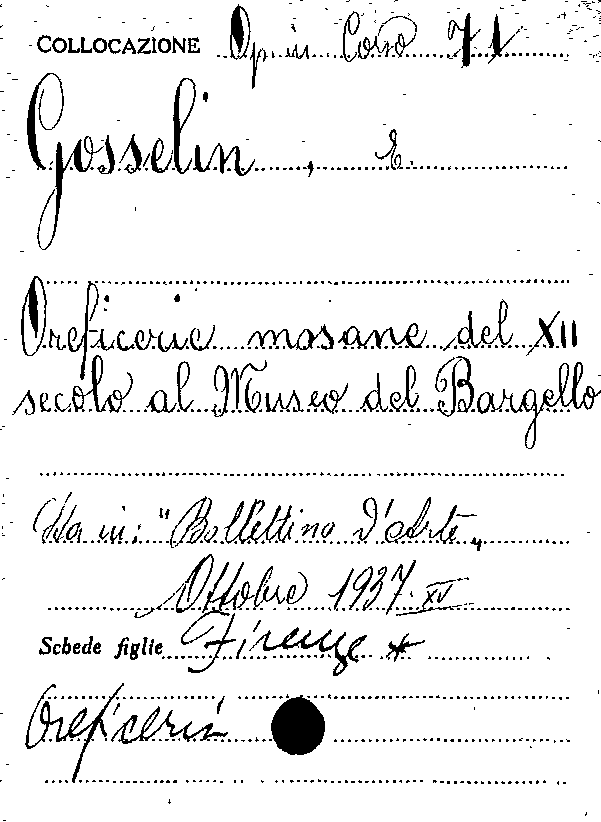 COLLOCAZIONE Op. in Corso 71
Gosselin, E.
Oreficerie mosane del XII
secolo al Museo del Bargello
Sta in: "Bollettino d'arte"
Ottobre 1937. XV
Schede figlie Firenze *
Oreficeria